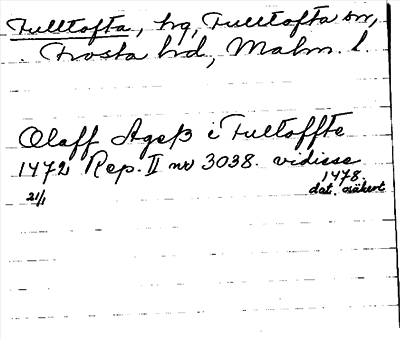 Fulltofta, hg, Fulltofta sn,
Frosta hd, Malm. l.
Olaff Ageß i Fultoffte
1472 Rep. II nr 3038. vidisse
1478.
21/1
dat. osäkert